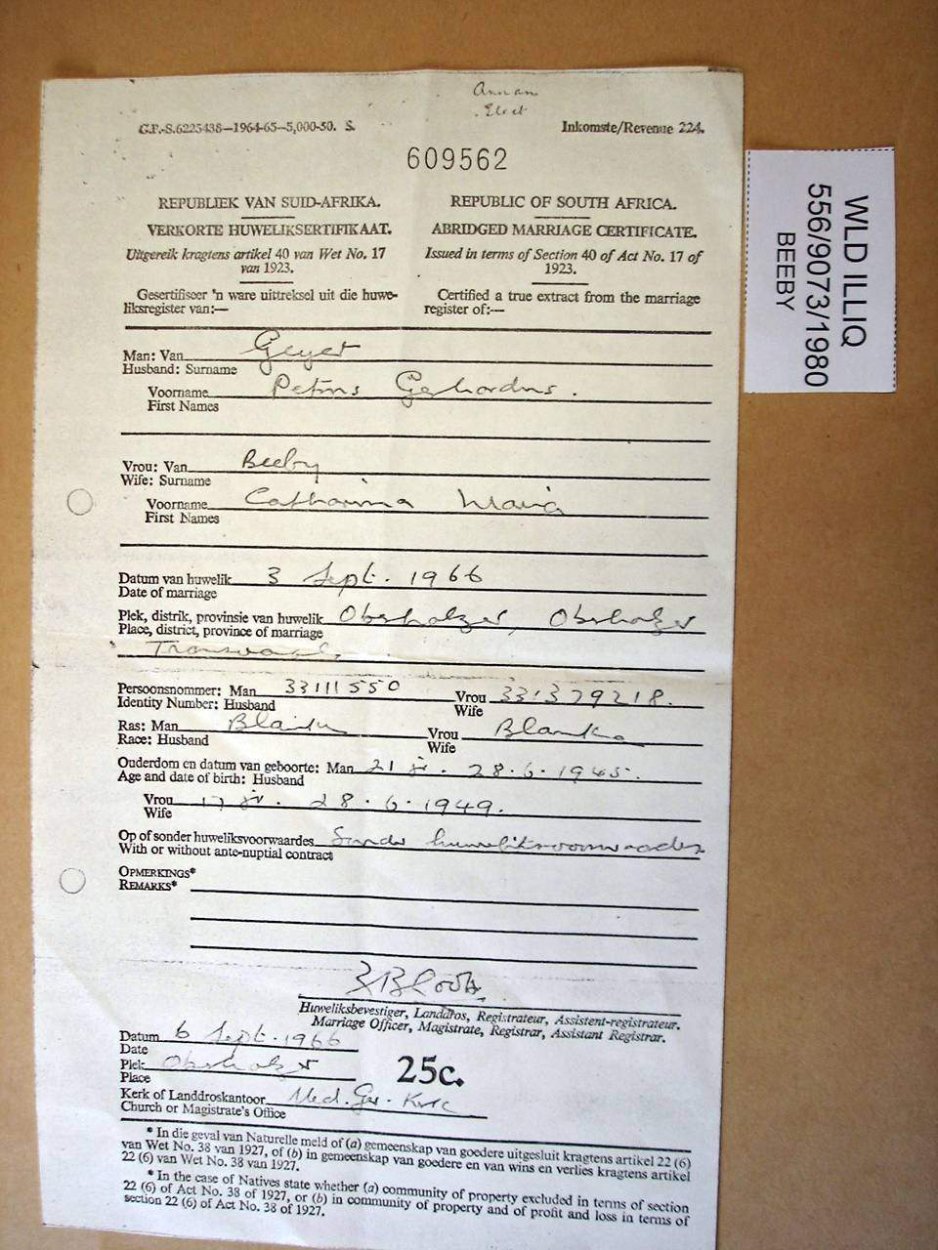 G.P.-S.6225438—1964-65—5,000-50. S.
Inkomste/Revenue 224.
609562
REPUBLIEK VAN SUID-AFRIKA.
VERKORTE HUWELIKSERTIFIKAAT.
Uitgereik kragtens artikel 40 van Wet No. 17
van 1923.
Gesertifiseer 'n ware uittreksel uit die huwe-
liksregister van:—
REPUBLIC OF SOUTH AFRICA.
ABRIDGED MARRIAGE CERTIFICATE.
Issued in terms of Section 40 of Act No. 17 of
1923.
Certified a true extract from the marriage
register of:—
Man: Van Geyer
Husband: Surname
Voorname Petrus Gerhardus.
First Names
Vrou: Van Beeby
Wife: Surname
Voorname Catharina Maria
First Names
Datum van huwelik 3 Sept. 1966
Date of marriage
Plek, distrik, provinsie van huwelik Oberholzer, Oberholzer
Place, district, province of marriage
Transvaal
Persoonsnommer: Man 33111550 Vrou 331379218.
Identity Number: Husband Wife
Ras: Man Blanke Vrou Blanke
Race: Husband Wife
Ouderdom en datum van geboorte: Man 21 jr. 28.6.1945.
Age and date of birth: Husband
Vrou 17 jr. 28.6.1949.
Wife
Op of sonder huweliksvoorwaardes Sonder huweliksvoorwaardes
With or without ante-nuptial contract
OPMERKINGS*
REMARKS*
Huweliksbevestiger, Landdros, Registrateur, Assistent-registrateur.
Marriage Officer, Magistrate, Registrar, Assistant Registrar.
Datum 6 Sept. 1966
Date
Plek Oberholzer
Place
25c.
Kerk of Landdroskantoor Ned. Ger. Kerk
Church or Magistrate's Office
* In die geval van Naturelle meld of (a) gemeenskap van goedere uitgesluit kragtens artikel 22 (6)
van Wet No. 38 van 1927, of (b) in gemeenskap van goedere en van wins en verlies kragtens artikel
22 (6) van Wet No. 38 van 1927.
* In the case of Natives state whether (a) community of property excluded in terms of section
22 (6) of Act No. 38 of 1927, or (b) in community of property and of profit and loss in terms of
section 22 (6) of Act No. 38 of 1927.
WLD ILLIQ
556/9073/1980
BEEBY